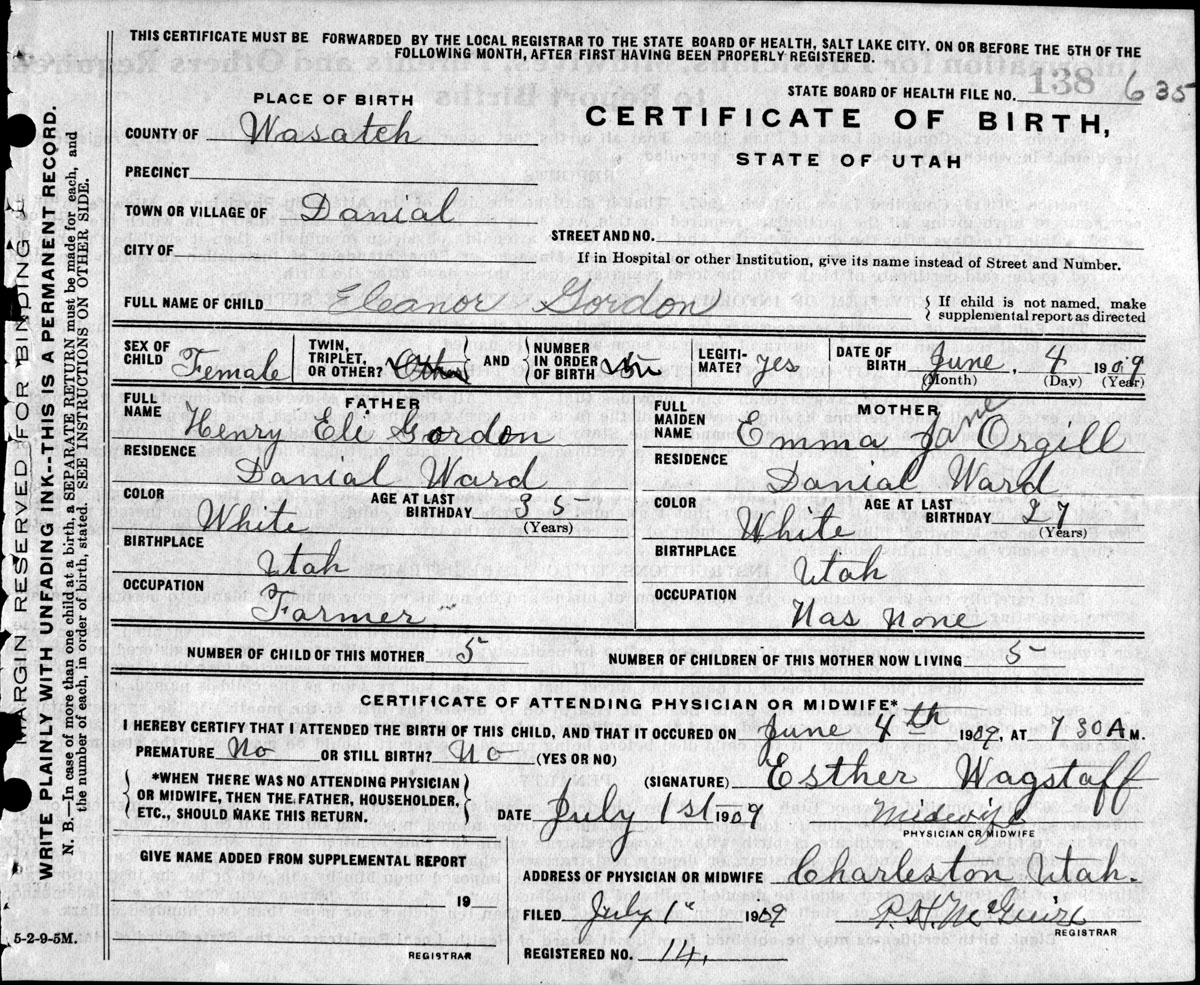 THIS CERTIFICATE MUST BE FORWARDED BY THE LOCAL REGISTRAR TO THE STATE BOARD OF HEALTH, SALT LAKE CITY. ON OR BEFORE THE 5TH OF THE
FOLLOWING MONTH, AFTER FIRST HAVING BEEN PROPERLY REGISTERED.
STATE BOARD OF HEALTH FILE NO. 138 635
PLACE OF BIRTH
CERTIFICATE OF BIRTH,
STATE OF UTAH
COUNTY OF Wasatch
PRECINCT
TOWN OR VILLAGE OF Danial
STREET AND NO.
CITY OF
If in Hospital or other Institution, give its name instead of Street and Number.
FULL NAME OF CHILD Eleanor Gordon
If child is not named, make
supplemental report as directed
SEX OF CHILD Female
TWIN, TRIPLET, OR OTHER?
AND
NUMBER IN ORDER OF BIRTH
LEGITIMATE? yes
DATE OF BIRTH June, 4 1909
(Month) (Day) (Year)
FATHER
FULL NAME Henry Eli Gordon
RESIDENCE Danial Ward
COLOR White
AGE AT LAST BIRTHDAY 35
(Years)
BIRTHPLACE Utah
OCCUPATION Farmer
MOTHER
FULL MAIDEN NAME Emma Jane Orgill
RESIDENCE Danial Ward
COLOR White
AGE AT LAST BIRTHDAY 27
(Years)
BIRTHPLACE Utah
OCCUPATION Has None
NUMBER OF CHILD OF THIS MOTHER 5
NUMBER OF CHILDREN OF THIS MOTHER NOW LIVING 5
CERTIFICATE OF ATTENDING PHYSICIAN OR MIDWIFE*
I HEREBY CERTIFY THAT I ATTENDED THE BIRTH OF THIS CHILD, AND THAT IT OCCURED ON June 4th 1909, AT 7 30 A M.
PREMATURE No OR STILL BIRTH? No (YES OR NO)
*WHEN THERE WAS NO ATTENDING PHYSICIAN
OR MIDWIFE, THEN THE FATHER, HOUSEHOLDER,
ETC., SHOULD MAKE THIS RETURN.
(SIGNATURE) Esther Wagstaff
DATE July 1st 1909
Midwife
PHYSICIAN OR MIDWIFE
GIVE NAME ADDED FROM SUPPLEMENTAL REPORT
19
REGISTRAR
ADDRESS OF PHYSICIAN OR MIDWIFE Charleston Utah.
FILED July 1st 1909
P. H. McGuire
REGISTRAR
REGISTERED NO. 14.
5-2-9-5M.
MARGIN RESERVED FOR BINDING
WRITE PLAINLY WITH UNFADING INK--THIS IS A PERMANENT RECORD.
N. B.—In case of more than one child at a birth, a SEPARATE RETURN must be made for each, and
the number of each, in order of birth, stated. SEE INSTRUCTIONS ON OTHER SIDE.